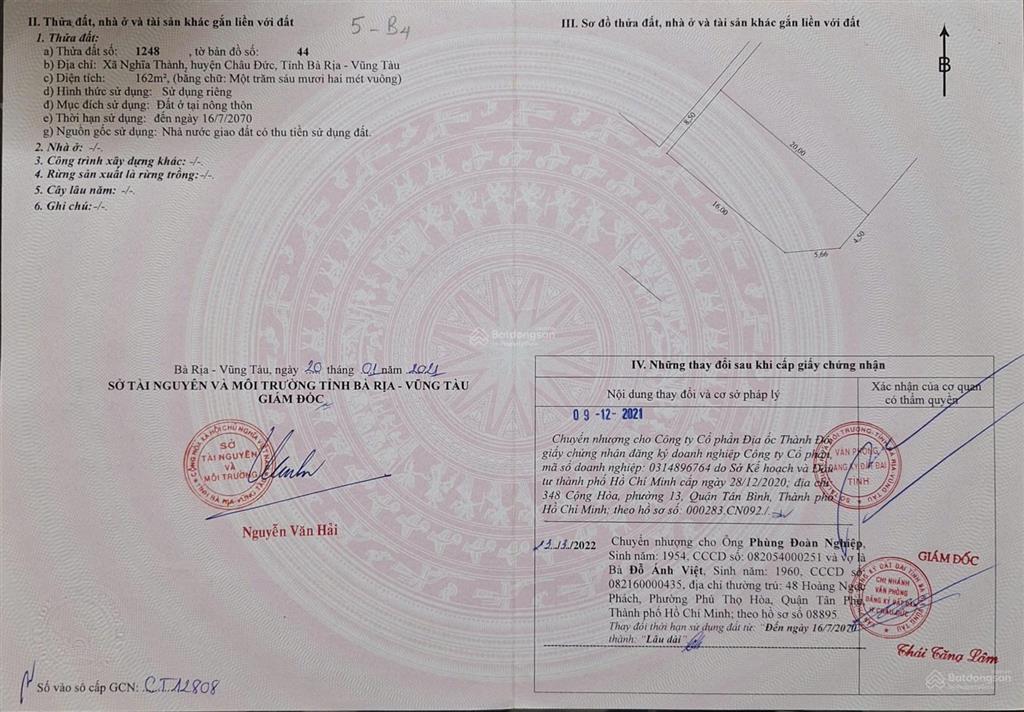 II. Thửa đất, nhà ở và tài sản khác gắn liền với đất
5 - B4
1. Thửa đất:
a) Thửa đất số: 1248 , tờ bản đồ số: 44
b) Địa chỉ: Xã Nghĩa Thành, huyện Châu Đức, Tỉnh Bà Rịa - Vũng Tàu
c) Diện tích: 162m², (bằng chữ: Một trăm sáu mươi hai mét vuông)
d) Hình thức sử dụng: Sử dụng riêng
đ) Mục đích sử dụng: Đất ở tại nông thôn
e) Thời hạn sử dụng: đến ngày 16/7/2070
g) Nguồn gốc sử dụng: Nhà nước giao đất có thu tiền sử dụng đất.
2. Nhà ở: -/-.
3. Công trình xây dựng khác: -/-.
4. Rừng sản xuất là rừng trồng:-/-.
5. Cây lâu năm: -/-.
6. Ghi chú:-/-.
Bà Rịa - Vũng Tàu, ngày 20 tháng 01 năm 2021
SỞ TÀI NGUYÊN VÀ MÔI TRƯỜNG TỈNH BÀ RỊA - VŨNG TÀU
GIÁM ĐỐC
CỘNG HÒA XÃ HỘI CHỦ NGHĨA VIỆT NAM
SỞ
TÀI NGUYÊN
VÀ
MÔI TRƯỜNG
TỈNH BÀ RỊA-VŨNG TÀU
Nguyễn Văn Hải
Số vào sổ cấp GCN: CT12808
III. Sơ đồ thửa đất, nhà ở và tài sản khác gắn liền với đất
B
8,50
20,00
16,00
4,50
5,66
Batdongsan
IV. Những thay đổi sau khi cấp giấy chứng nhận
Nội dung thay đổi và cơ sở pháp lý
Xác nhận của cơ quan
có thẩm quyền
09-12-2021
Chuyển nhượng cho Công ty Cổ phần Địa ốc Thành Đô
giấy chứng nhận đăng ký doanh nghiệp Công ty Cổ phần
mã số doanh nghiệp: 0314896764 do Sở Kế hoạch và Đầu
tư thành phố Hồ Chí Minh cấp ngày 28/12/2020; địa chỉ
348 Cộng Hòa, phường 13, Quận Tân Bình, Thành phố
Hồ Chí Minh; theo hồ sơ số: 000283.CN092./.
VĂN PHÒNG
ĐĂNG KÝ ĐẤT ĐAI
TỈNH
/2022
Chuyển nhượng cho Ông Phùng Đoàn Nghiệp,
Sinh năm: 1954, CCCD số: 082054000251 và vợ là
Bà Đỗ Ánh Việt, Sinh năm: 1960, CCCD số:
082160000435, địa chỉ thường trú: 48 Hoàng Ngọc
Phách, Phường Phú Thọ Hòa, Quận Tân Phú,
Thành phố Hồ Chí Minh; theo hồ sơ số 08895
Thay đổi thời hạn sử dụng đất từ: "Đến ngày 16/7/2070"
thành: "Lâu dài"
GIÁM ĐỐC
CHI NHÁNH
VĂN PHÒNG
ĐĂNG KÝ ĐẤT ĐAI
H.CHÂU ĐỨC
Thái Tăng Lâm
Batdongsan